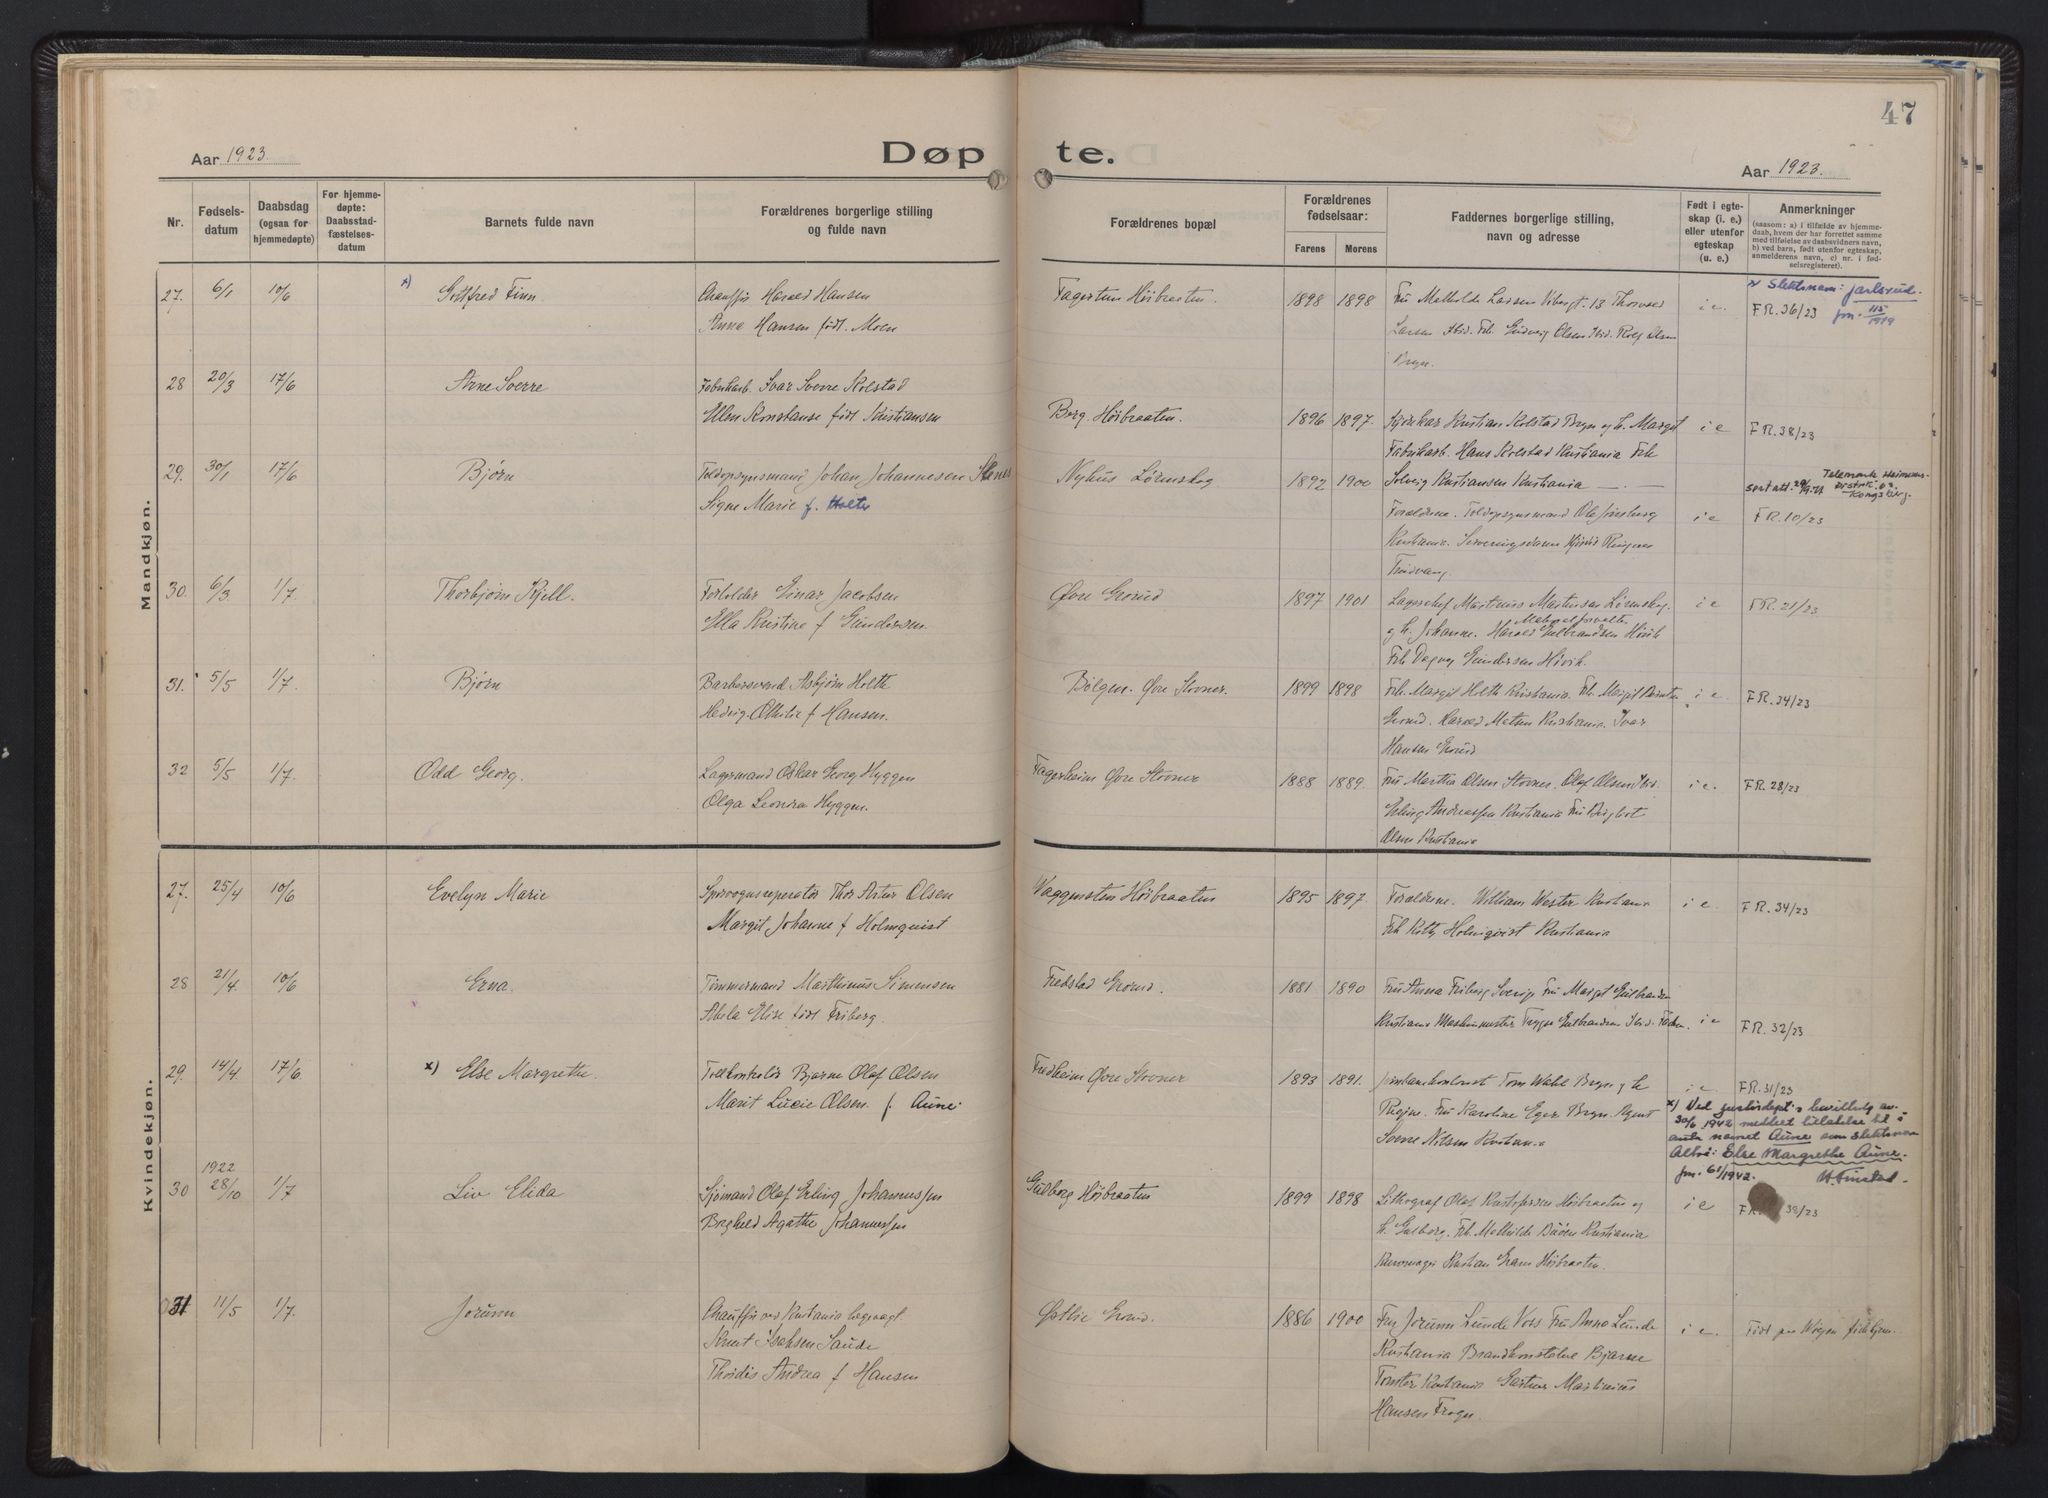 47
Døpte.
Aar 1923.
Aar 1923.
Nr.
Fødsels-
datum
Daabsdag
(ogsaa for
hjemmedøpte)
For hjemme-
døpte:
Daabsstad-
fæstelses-
datum
Barnets fulde navn
Forældrenes borgerlige stilling
og fulde navn
Forældrenes bopæl
Forældrenes
fødselsaar:
Farens
Morens
Faddernes borgerlige stilling,
navn og adresse
Født i egte-
skap (i. e.)
eller utenfor
egteskap
(u. e.)
Anmerkninger
(saasom: a) i tilfælde av hjemme-
daab, hvem der har forrettet samme
med tilføielse av daabsvidners navn,
b) ved barn, født utenfor egteskap,
anmelderens navn, c) nr. i fød-
selsregisteret).
Mandkjøn.
27. 6/1 10/6 x) Gotfred Finn. Chauffør Harald Hansen Fagertun Høibraaten. 1898 1898 Fru Mathilde Larsen Vibergt. 13 Thorvald i e. x Slektsnavn: Jarlsrud.
Anna Hansen født. Moen Larsen Ibid. Frk. Olsen Ibid. Rolf Olsen FR. 36/23 jm. 115/1919
Bryn.
28 20/3 17/6 Arne Sverre Fabrikarb. Ivar Sverre Kolstad
Ellen Konstanse født Kristiansen Borg. Høibraaten. 1896 1897. Kristian Kolstad Bryn og h. Margit i e FR. 38/23
Fabrikarb. Hans Kolstad Kristiania Frk
29. 30/1 17/6 Bjørn Toldopsynsmand Johan Johannesen Stenes Nyhus Lørenskog 1892 1900 Solveig Kristiansen Kristiania
Signe Marie f. Holter Forældrene. Toldopsynsmand Ole i e FR. 10/23
Kristiania. Serveringsdame
30. 6/3. 1/7. Thorbjørn Kjell. Forbolder Einar Jacobsen Øvre Grorud 1897 1901 Lagerchef Martinius Lørenskog. i e FR. 21/23
Ella Kristine f Gundersen. og h. Johanne. Harald Gulbrandsen Høvik
Frk Dagny Gundersen Høvik.
31. 5/5 1/7. Bjørn Barbersvend Asbjørn Holth Bølgen. Øvre Stovner. 1899 1898 Frk. Margit Holth Kristiania. Frk. Margit i e. FR. 34/23
Hedvig Othilie f Hansen. Grorud. Harald Kristiania. Ivar
Hansen Grorud
32 5/5 1/7. Odd Georg. Lagermand Oskar Georg Hyggen Fagerheim Øvre Stovner 1888 1889. Fru Martha Olsen Stovner. Olaf Olsen Ibid. i e. FR. 28/23
Olga Leonora Hyggen. Erling Andreassen Kristiania Fru
Olsen Kristiania
Kvindekjøn.
27. 25/4 10/6 Evelyn Marie Thor Artur Olsen Høibraaten 1895 1897. Forældrene. William Wester Kristiania i e. FR. 34/23
Margit Johanne f Holmquist Frk Kitty Holmqvist Kristiania
28 21/4. 10/6 Erna. Tømmermand Marthinus Simensen Fredstad Grorud. 1881 1890 Fru Anna Friberg Sverige Fru Margit Gulbrandsen
Abela Elise født Friberg. Kristiania Maskinmester Trygve Gulbrandsen Ibid. i e FR. 32/23
29. 14/4. 17/6. x) Else Margrethe. Toldkontrolør Bjarne Olaf Olsen Fredheim Øvre Stovner 1893 1891. Tom Wahl Bryn og h i e FR. 31/23
Marit Lucie Olsen f. Aune. Regine. Fru Karoline Eger Bryn. Agent
Sverre Nilsen Kristiania
x) Ved justisdept.s bevilling av
30/6 1942 meddelt tillatelse til å
anta navnet Aune som slektsnavn
Altså: Else Margrethe Aune.
jm. 61/1942.
30 1922 28/10 1/7 Liv Elida Sjømand Olaf Erling Johannessen Gulborg Høibraaten 1899 1898 Lithograf Olaf Kristofersen Høibraaten og i e 38/23
Borghild Agathe Johannessen h. Gulborg. Frk. Mathilde Kristiania
Kristian Høibraaten.
31 11/5 1/7. Jorunn Chauffør ved Kristiania lægevagt. Østlie Grorud. 1886 1900 Jorunn Lunde Voss Fru Anna Lunde i e. Født paa
Knut Isaksen Saude Kristiania Brandkonstabel Bjarne
Thordis Andrea f Hansen Kristiania Gartner Martinius
Hansen Frogn.